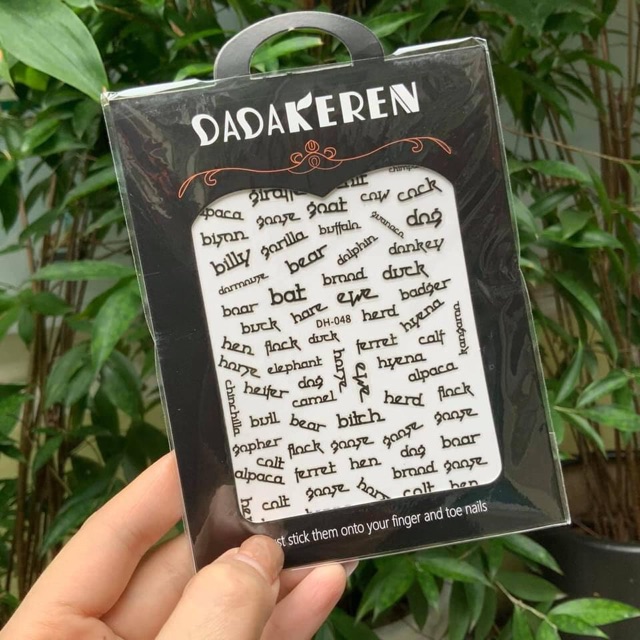 DADAKEREN
giraffe
paca goose goat cow cock
bison gorilla buffalo dog
billy bear dolphin donkey
dormouse brood duck
boar bat ewe badger
buck hare herd hyena
DH-048
hen flock duck ferret calf kangaroo
horse elephant hyena
dog horse ewe alpaca
chinchilla heifer camel herd flock
bull bear bitch goose
gopher flock goose goose dog boar
colt
alpaca ferret hen brood goose
colt goose colt hen
st stick them onto your finger and toe nails